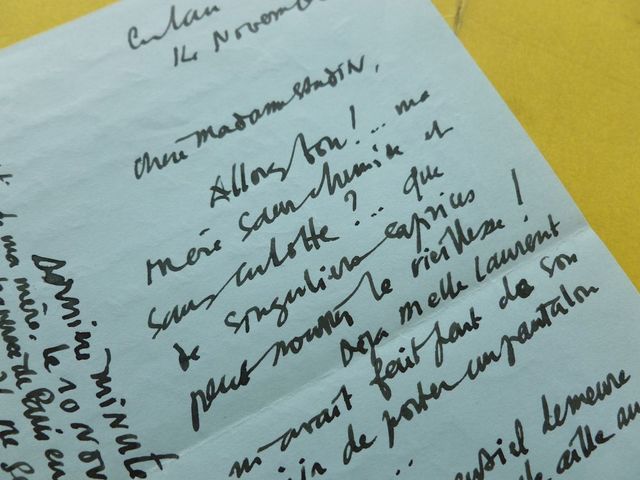 Culan
14 Novemb
Chère Madame Sandin,
Allons bon! ... ma
mère sans chemise et
sans culotte? ... que
de singuliers caprices
peut nourrir la vieillesse!
Déjà Melle Laurent
m'avait fait part de son
de porter un pantalon
... demeure
Dernière minute
de ma mère. le 10 Nov
de Paris en